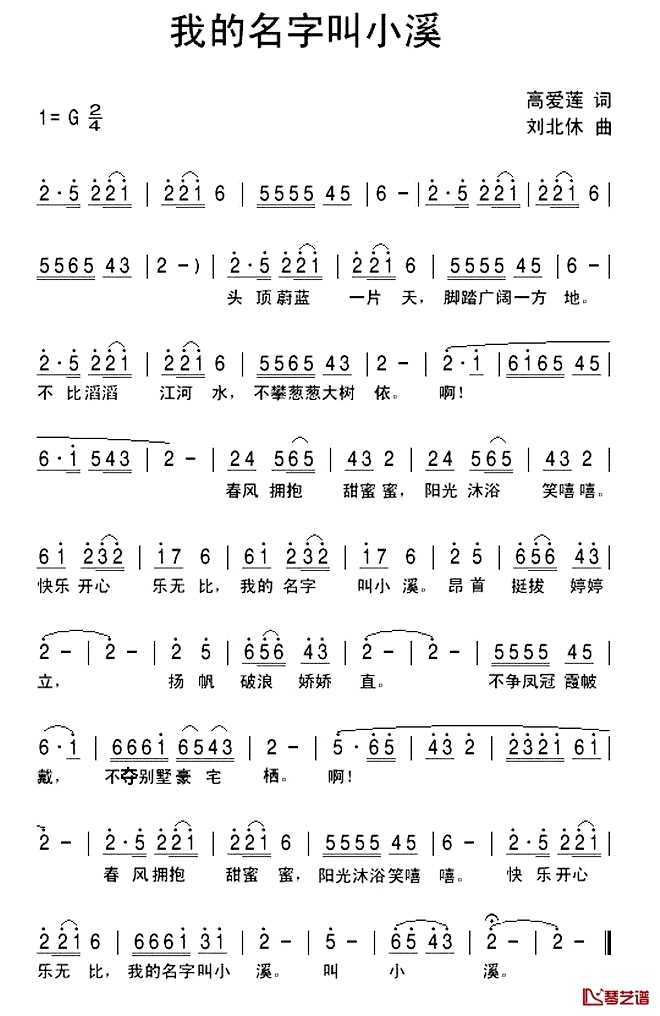 我的名字叫小溪
高爱莲 词
1= G 2/4
刘北休 曲
2·5 221 | 221 6 | 5555 45 | 6 - | 2·5 221 | 221 6 |
5565 43 | 2 - ) | 2·5 221 | 221 6 | 5555 45 | 6 - |
头 顶 蔚蓝 一片 天， 脚踏广阔一方 地。
2·5 221 | 221 6 | 5555 43 | 2 - | 2·1 | 6165 45 |
不 比滔滔 江河 水， 不攀葱葱大树 依。 啊！
6·1 543 | 2 - | 24 565 | 43 2 | 24 565 | 43 2 |
春风 拥抱 甜蜜 蜜， 阳光 沐浴 笑嘻 嘻。
61 232 | 17 6 | 61 232 | 17 6 | 2 5 | 656 43 |
快乐 开心 乐无 比， 我的 名字 叫小 溪。 昂 首 挺拔 婷婷
2 - | 2 - | 2 5 | 656 43 | 2 - | 2 - | 5555 45 |
立， 扬 帆 破浪 娇娇 直。 不争凤冠 霞帔
6·1 | 6661 6543 | 2 - | 5·65 | 43 2 | 2321 61 |
戴， 不夺别墅 豪 宅 栖。 啊！
2 - | 2·5 221 | 221 6 | 5555 45 | 6 - | 2·5 221 |
春 风拥抱 甜蜜 蜜， 阳光沐浴笑嘻 嘻。 快 乐开心
221 6 | 6661 31 | 2 - | 5 - | 65 43 | 2 - | 2 - ‖
乐无 比， 我的名字叫小 溪。 叫 小 溪。
琴艺谱